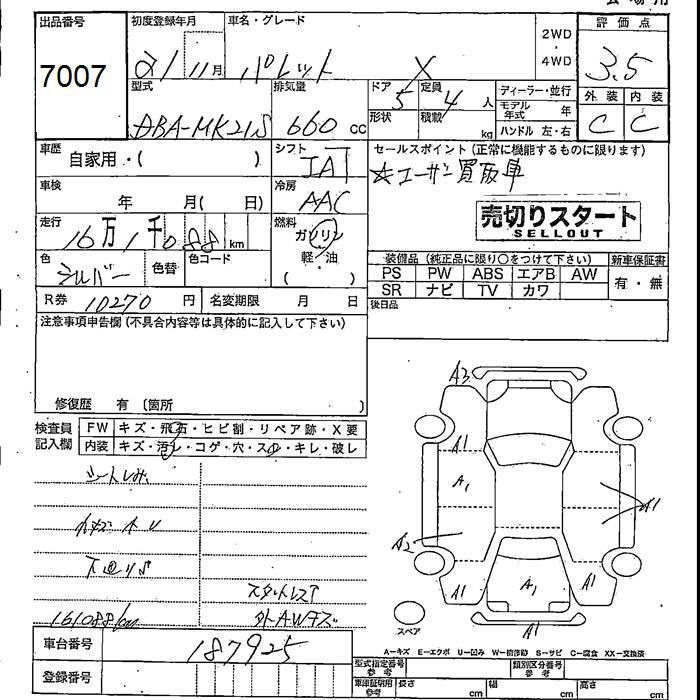 出品番号
7007
初度登録年月
21/11月
車名・グレード
パレット X
2WD
・
4WD
評価点
3.5
型式
DBA-MK21S
排気量
660 cc
ドア 5
形状
定員 4 人
積載 kg
ディーラー・並行
モデル年式 年
ハンドル 左・右
外装 内装
C C
車歴
自家用・( )
シフト
IAT
セールスポイント(正常に機能するものに限ります)
☆エーサン買取車
車検
年 月( 日)
冷房
AAC
売切りスタート
SELLOUT
走行
16万1千088 km
燃料
ガソリン
軽・油
( )
色
シルバー
色替
色コード
装備品(純正品に限り○をつけて下さい)
新車保証書
PS PW ABS エアB AW
SR ナビ TV カワ
有・無
R券 10270 円
名変期限 月 日
後日品
注意事項申告欄(不具合内容等は具体的に記入して下さい)
修復歴 有 〔箇所 〕
検査員記入欄
FW キズ・飛石・ヒビ割・リペア跡・X要
内装 キズ・汚レ・コゲ・穴・スレ・キレ・破レ
シートしみ
下廻りサ
スタットレス
161088km
外AWキズ
A3
A1
A1
A2
A1
A1
A1
A1
A1
スペア
A-キズ E-エクボ U-凹み W-補修跡 S-サビ C-腐食 XX-交換済
車台番号
187925
登録番号
型式指定番号
参考
類別区分番号
参考
車庫証明用
参考
長さ cm
幅 cm
高さ cm